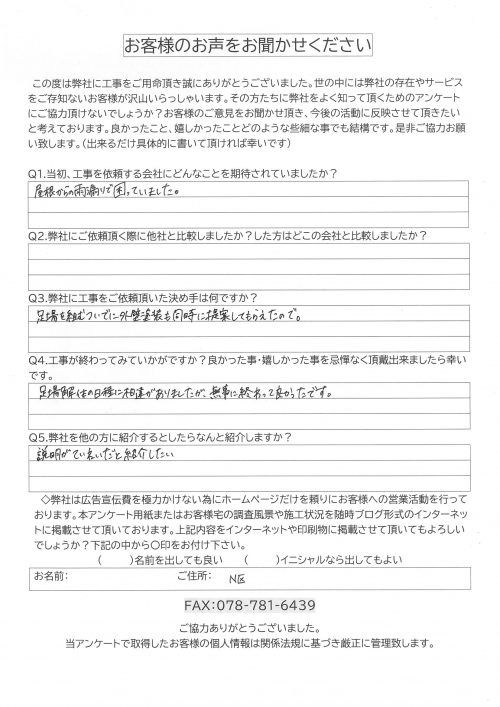 お客様のお声をお聞かせください
この度は弊社に工事をご用命頂き誠にありがとうございました。世の中には弊社の存在やサービス
をご存知ないお客様が沢山いらっしゃいます。その方たちに弊社をよく知って頂くためのアンケート
にご協力頂けないでしょうか？お客様のご意見をお聞かせ頂き、今後の活動に反映させて頂きたい
と考えております。良かったこと、嬉しかったことどのような些細な事でも結構です。是非ご協力お願
い致します。（出来るだけ具体的に書いて頂ければ幸いです）
Q1.当初、工事を依頼する会社にどんなことを期待されていましたか？
屋根からの雨漏りで困っていました。
Q2.弊社にご依頼頂く際に他社と比較しましたか？した方はどこの会社と比較しましたか？
Q3.弊社に工事をご依頼頂いた決め手は何ですか？
足場を組むついでに外壁塗装も同時に提案してもらえたので。
Q4.工事が終わってみていかがですか？良かった事・嬉しかった事を忌憚なく頂戴出来ましたら幸い
です。
足場解体の日程に相違がありましたが、無事に終わって良かったです。
Q5.弊社を他の方に紹介するとしたらなんと紹介しますか？
説明がていねいだと紹介したい
◇弊社は広告宣伝費を極力かけない為にホームページだけを頼りにお客様への営業活動を行って
おります。本アンケート用紙またはお客様宅の調査風景や施工状況を随時ブログ形式のインターネッ
トに掲載させて頂いております。上記内容をインターネットや印刷物に掲載させて頂いてもよろしい
でしょうか？下記の中から〇印をお付け下さい。
（　　　）名前を出しても良い　（　　　）イニシャルなら出してもよい
お名前：　ご住所：　N区
FAX：078-781-6439
ご協力ありがとうございました。
当アンケートで取得したお客様の個人情報は関係法規に基づき厳正に管理致します。